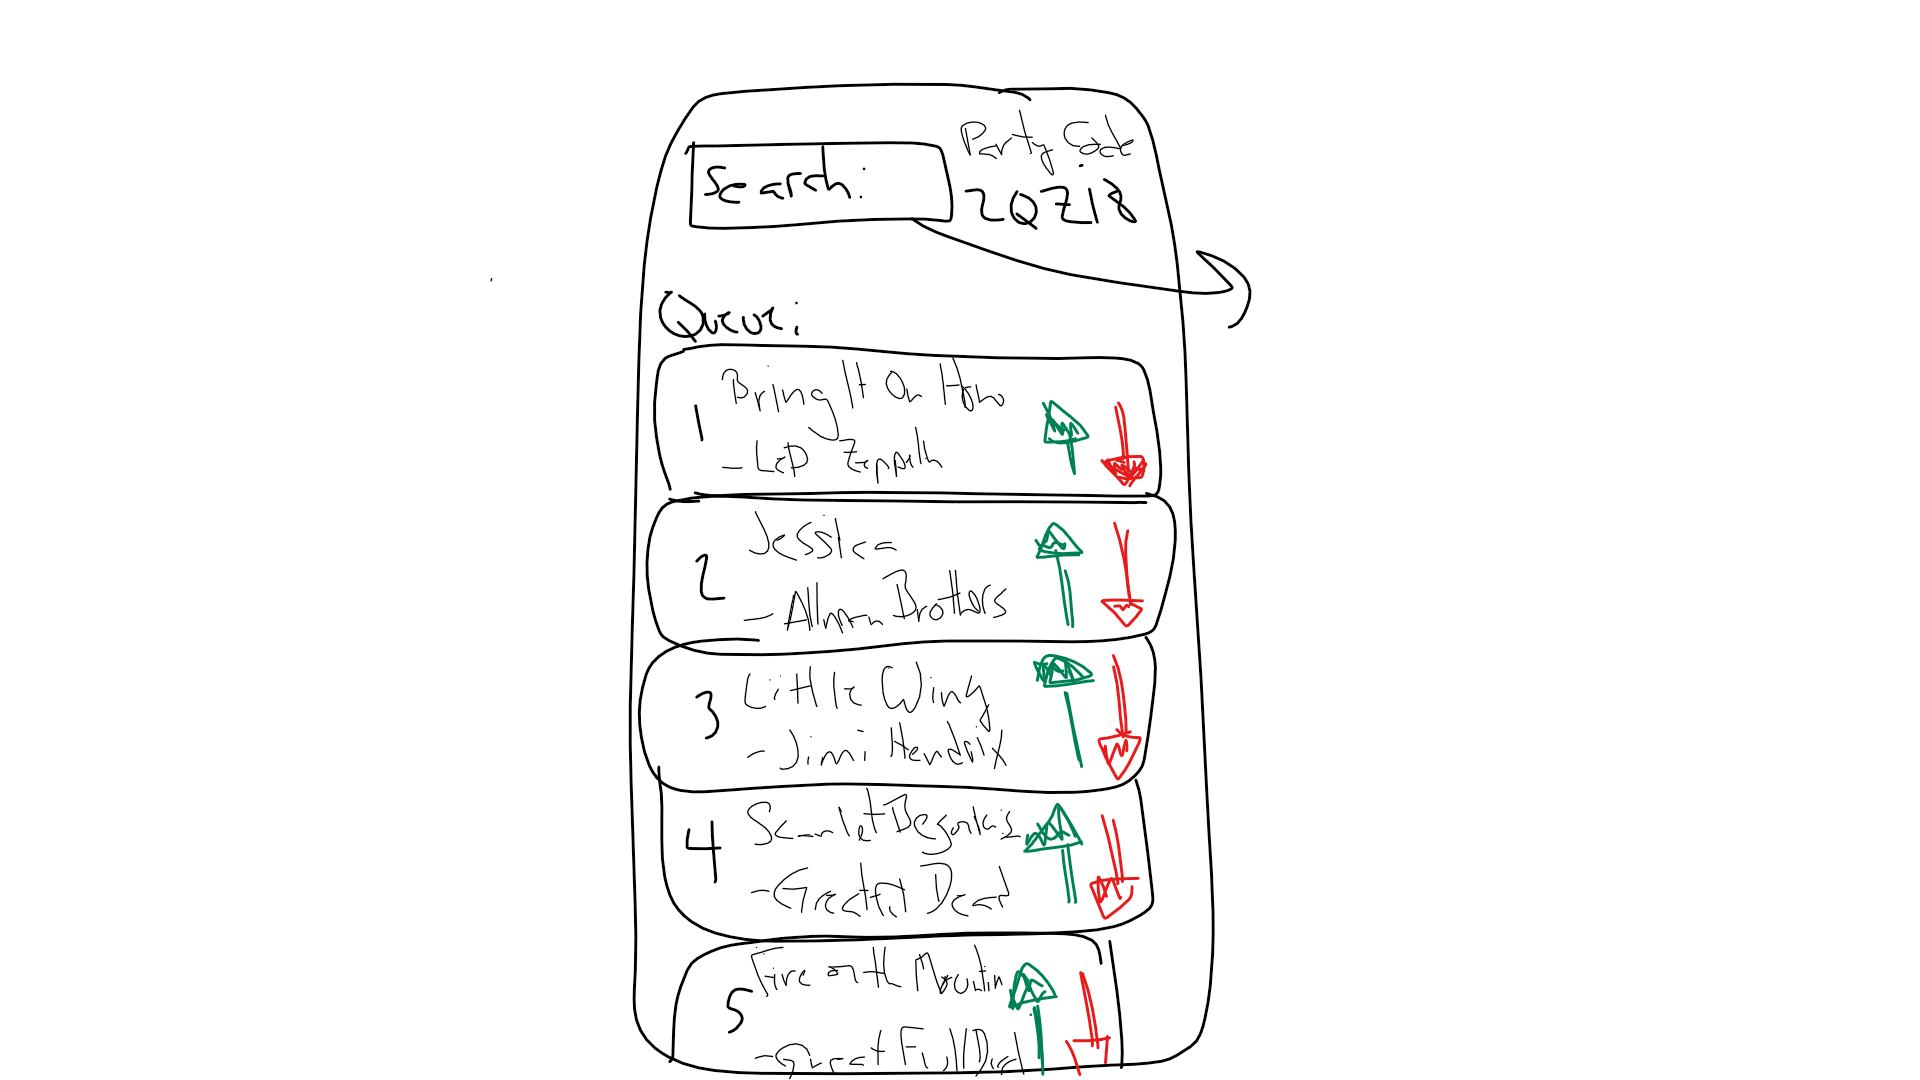 Party Code
Search:
2QZ18
Queue:
1
Bring It On Home
- LeD Zeppelin
2
Jessica
- Allman Brothers
3
Little Wing
- Jimi Hendrix
4
Scarlet Begonias
- Greatful Dead
5
Fire on the Mountin
- Great Full Dead